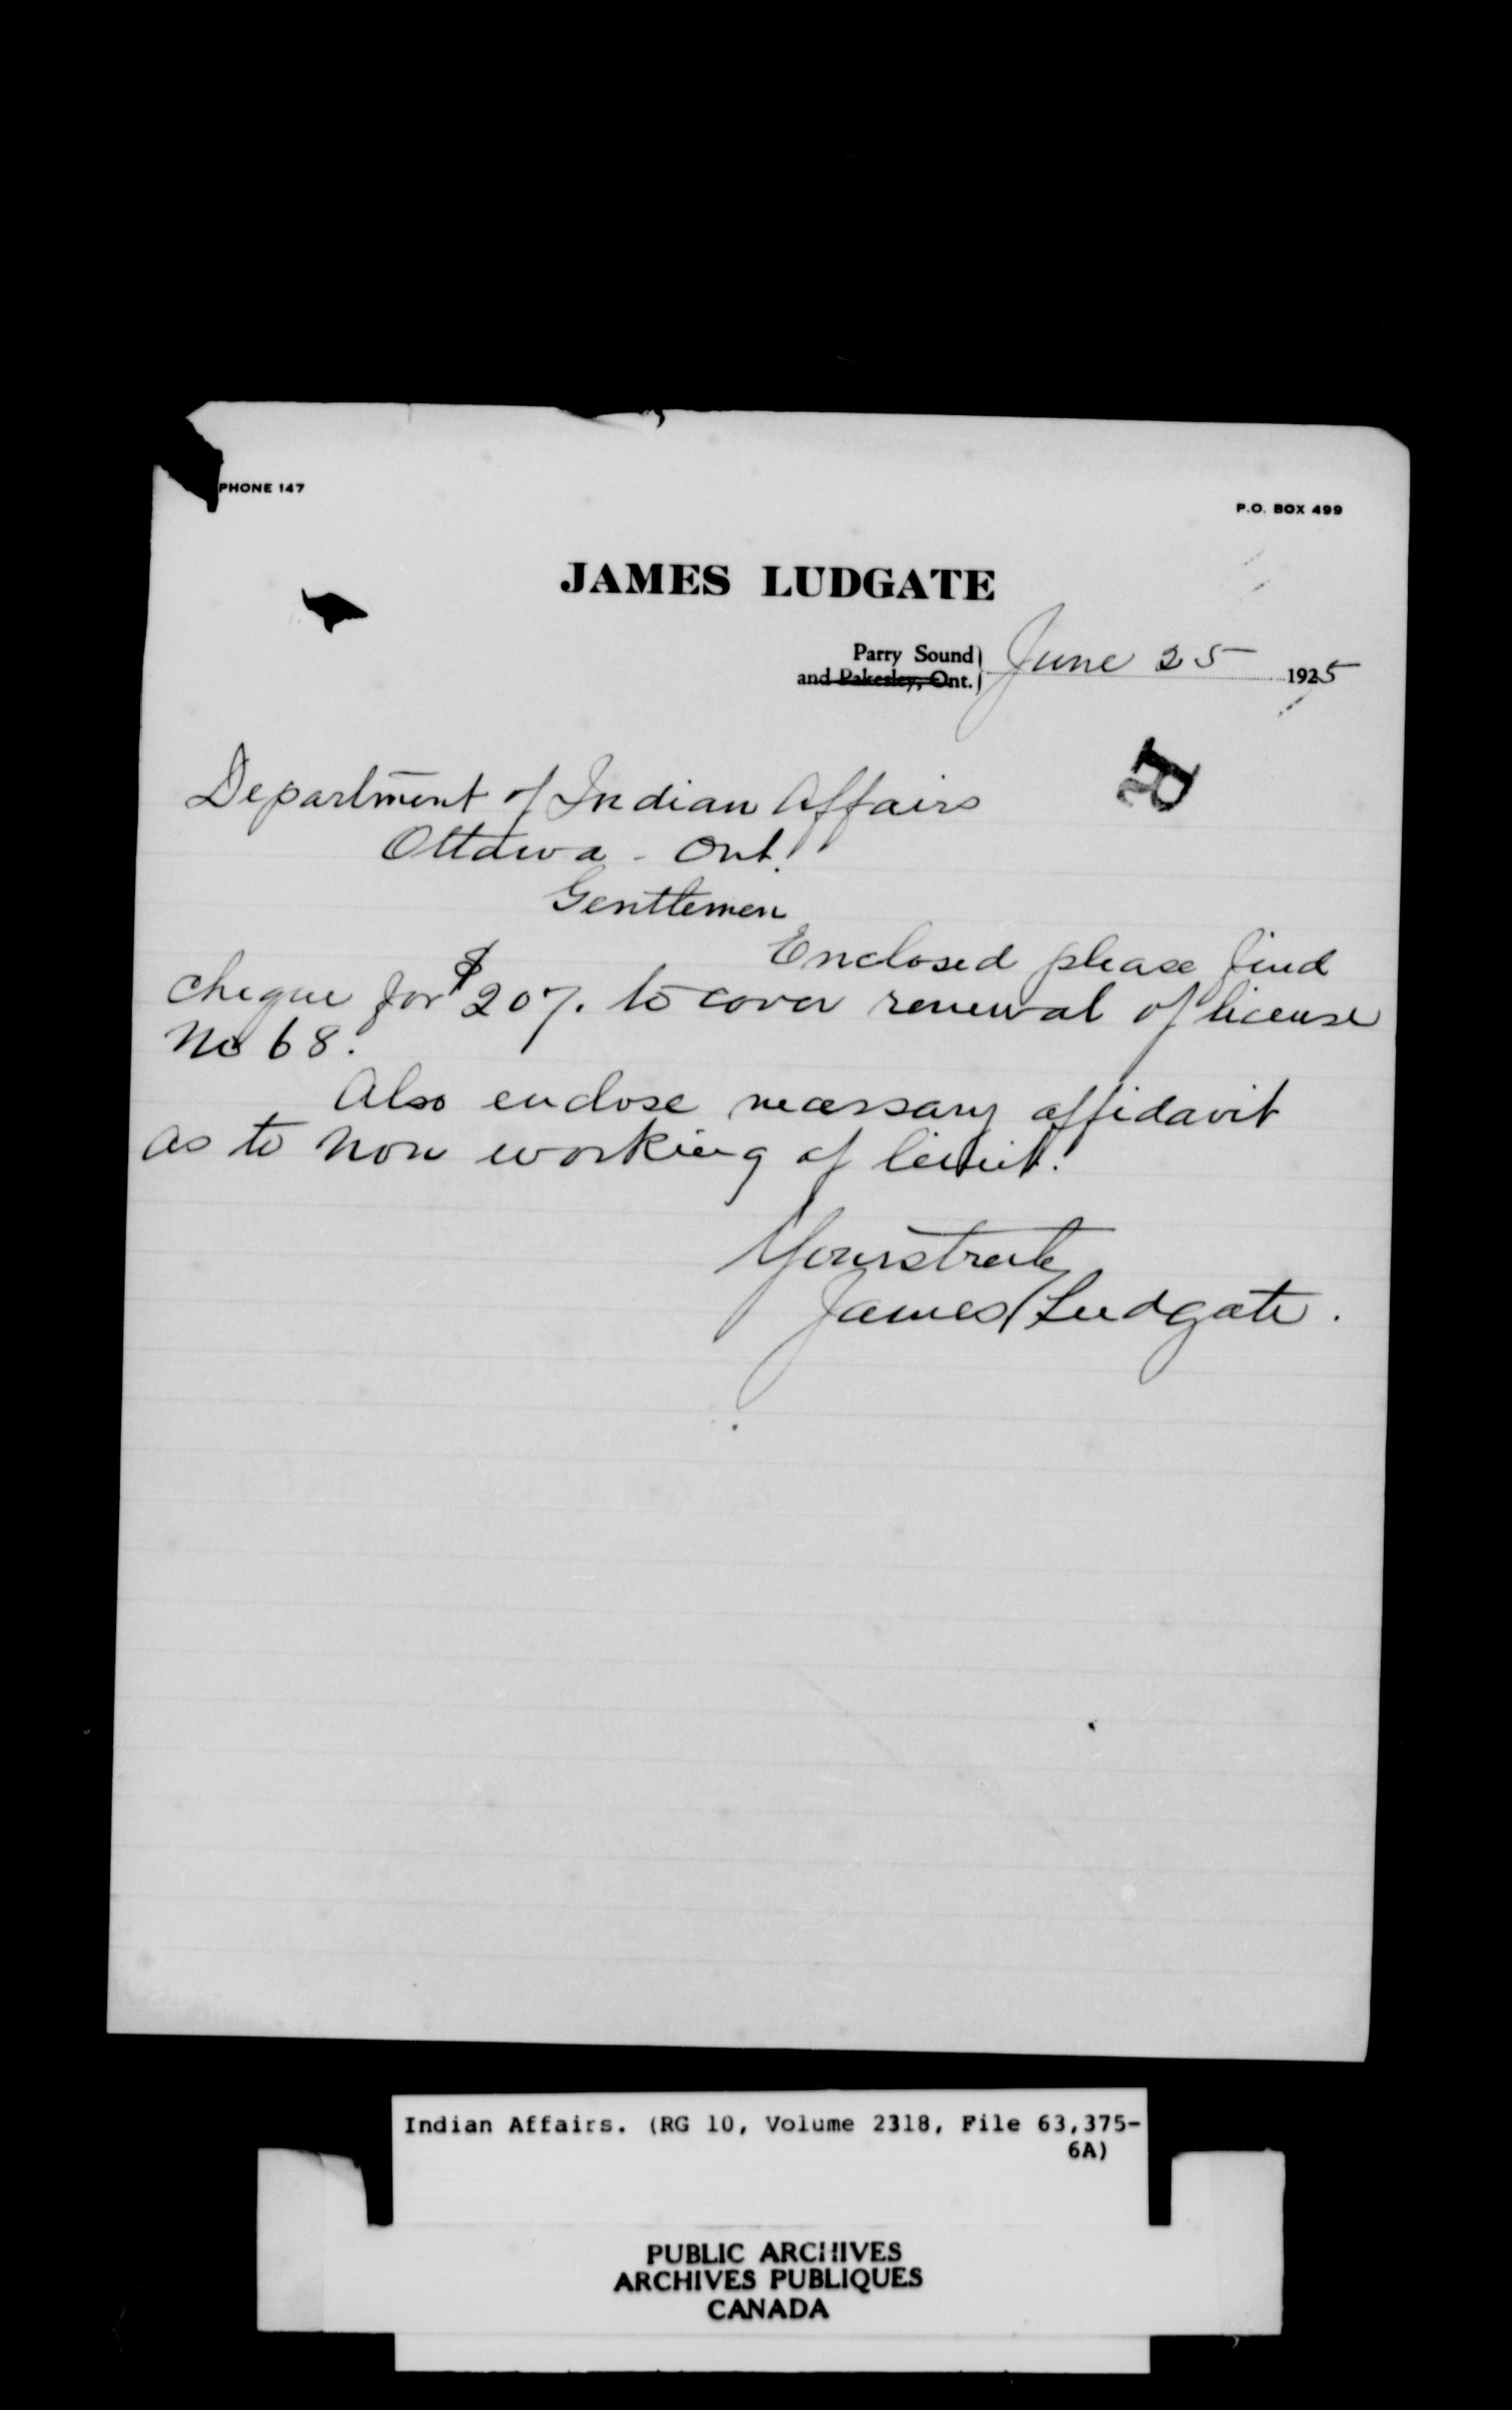 PHONE 147
P.O. BOX 499
JAMES LUDGATE
Parry Sound
and Pakesley, Ont.
June 25 1925
R
Department of Indian Affairs
Ottawa - Ont.
Gentlemen
Enclosed please find
cheque for $207. to cover renewal of license
No 68.
Also enclose necessary affidavit
as to non working of limit.
Yours truly
James Ludgate.
Indian Affairs. (RG 10, Volume 2318, File 63,375-
6A)
PUBLIC ARCHIVES
ARCHIVES PUBLIQUES
CANADA